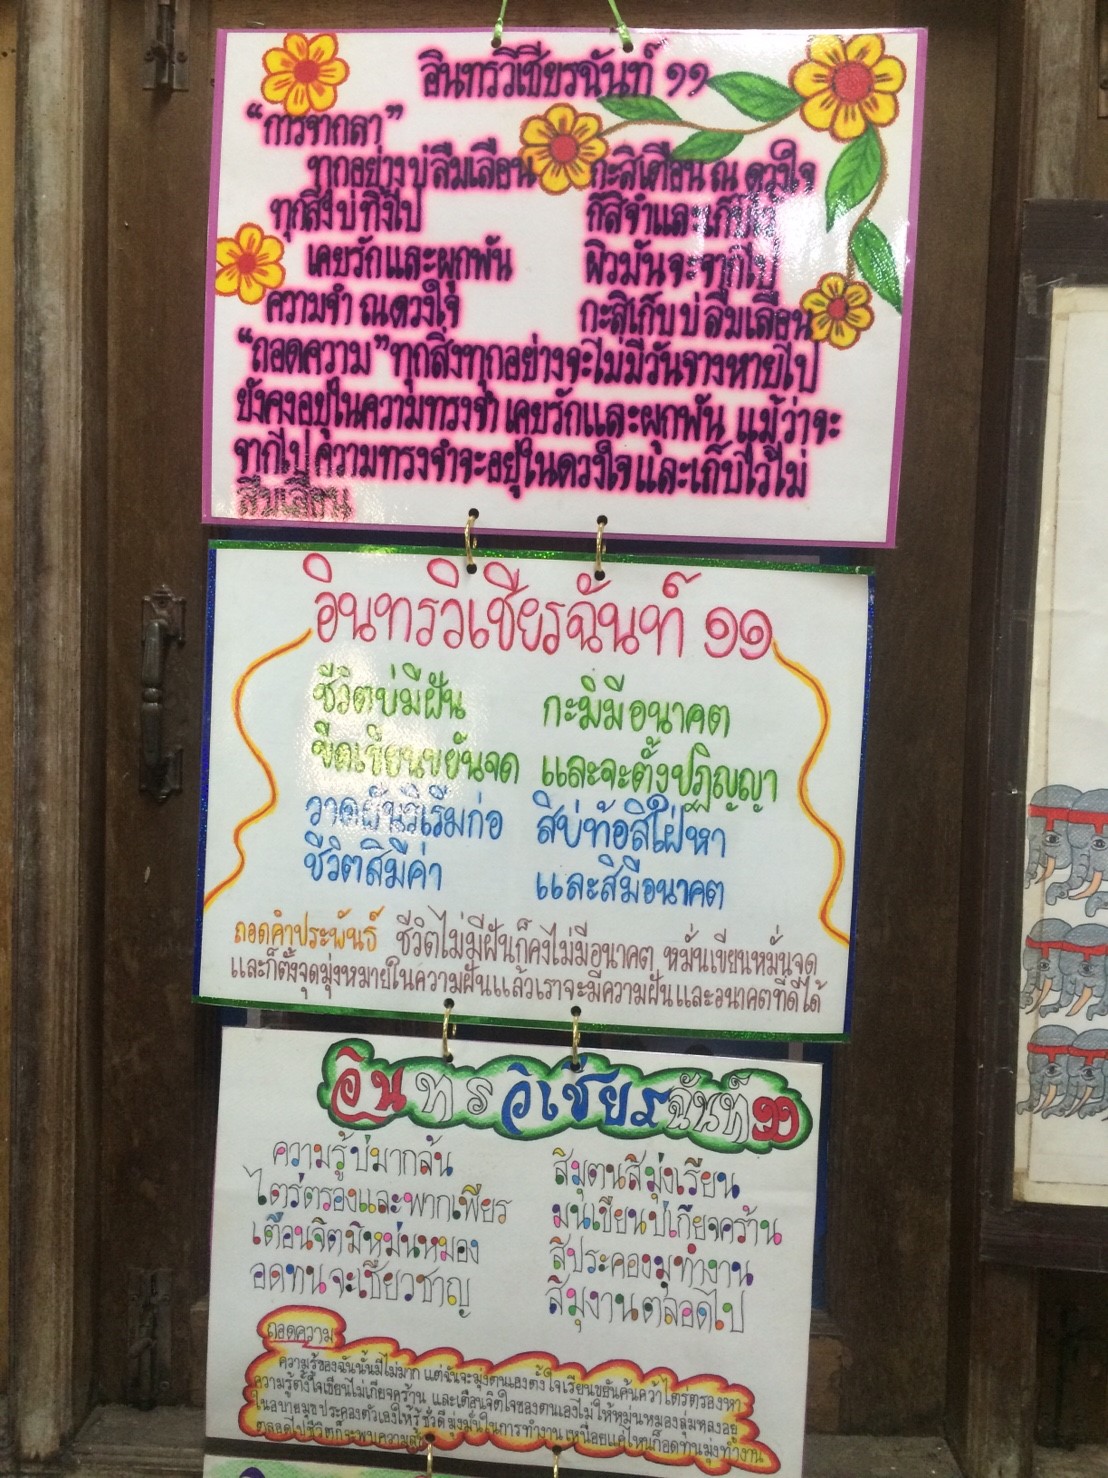 อินทรวิเชียรฉันท์ ๑๑
“การจากลา”
ทุกอย่างบ่ลืมเลือน กะสิเตือน ณ ดวงใจ
ทุกสิ่งบ่ทิ้งไป กะสิจำและเก็บไว้
เคยรักและผูกพัน ผิวมันจะจากไป
ความจำ ณ ดวงใจ กะสิเก็บบ่ลืมเลือน
“ถอดความ” ทุกสิ่งทุกอย่างจะไม่มีวันจางหายไป
ยังคงอยู่ในความทรงจำ เคยรักและผูกพัน แม้ว่าจะ
จากไป ความทรงจำจะอยู่ในดวงใจและเก็บไว้ไม่
ลืมเลือน
อินทรวิเชียรฉันท์ ๑๑
ชีวิตบ่มีฝัน กะมิมีอนาคต
ขีดเขียนขยันจด และจะตั้งปฏิญญา
วาดฝันริเริ่มก่อ สิบ่ท้อสิใฝ่หา
ชีวิตสิมีค่า และสิมีอนาคต
ถอดคำประพันธ์ ชีวิตไม่มีฝันก็คงไม่มีอนาคต หมั่นเขียนหมั่นจด
และก็ตั้งจุดมุ่งหมายในความฝันแล้วเราจะมีความฝันและอนาคตที่ดีได้
อินทรวิเชียรฉันท์ ๑๑
ความรู้บ่มากล้น สิมุตนสิมุ่งเรียน
ไตร่ตรองและพากเพียร มนเขียนบ่เกียจคร้าน
เตือนจิตมิหม่นหมอง สิประคองมุทำงาน
อดทนจะเชี่ยวชาญ สิมุงานตลอดไป
ถอดความ
ความรู้ของฉันนั้นมีไม่มาก แต่ฉันจะมุ่งตนเองตั้งใจเรียนขยันค้นคว้าไตร่ตรองหา
ความรู้ตั้งใจเขียนไม่เกียจคร้าน และเตือนจิตใจของตนเองไม่ให้หม่นหมองลุ่มหลงอยู่
ในอบายมุข ประคองตัวเองให้รู้ชั่วดีมุ่งมั่นในการทำงานเหนื่อยแค่ไหนก็อดทนมุ่งทำงาน
ตลอดไปชีวิตก็จะพบความ